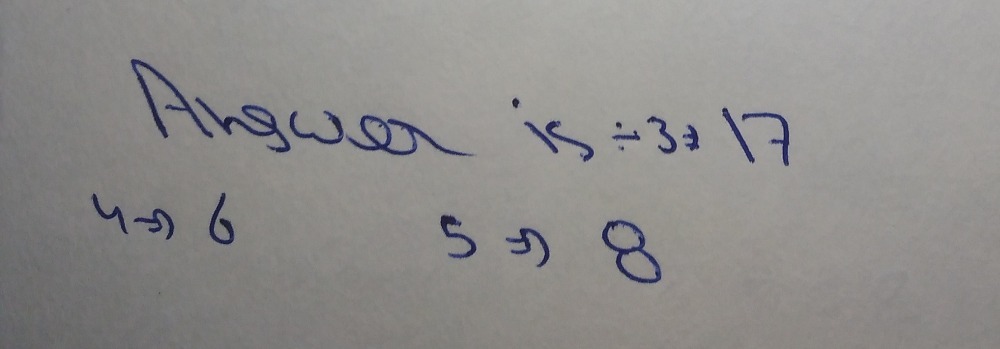 Answer is :- 3 → 17
4 → 6 5 → 8